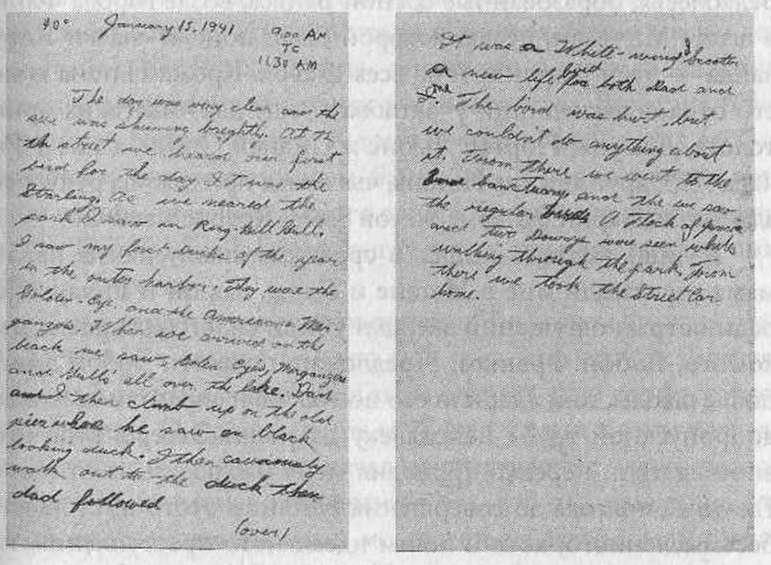 40°
January 15, 1941
9:00 AM
TO
11:30 AM
The day was very clear and the
sun was shinning brightly. At
th street we heard our first
bird for the day. It was the
Starling. As we neared the
park I saw an Ring-bill Gull.
I saw my first Ducks of the year
in the outer harbor. They was the
Golden-Eye and the American Mer-
ganzers. When we arrived on the
beach we saw Golen Eyes, Merganzers
and Gulls all over the lake. Dad
and I then climb up on the old
pier where he saw an black
looking duck. I then cautiously
walk out to the duck then
dad followed
(over)
It was a White-wing'd Scooter
a new life bird for both Dad and
I. The bird was hurt, but
we couldn't do anything about
it. From there we went to the
Sanctuary and the we saw
the regular birds. A flock of Juncos
and two Downys were seen while
walking through the park. From
there we took the Street Car
home.